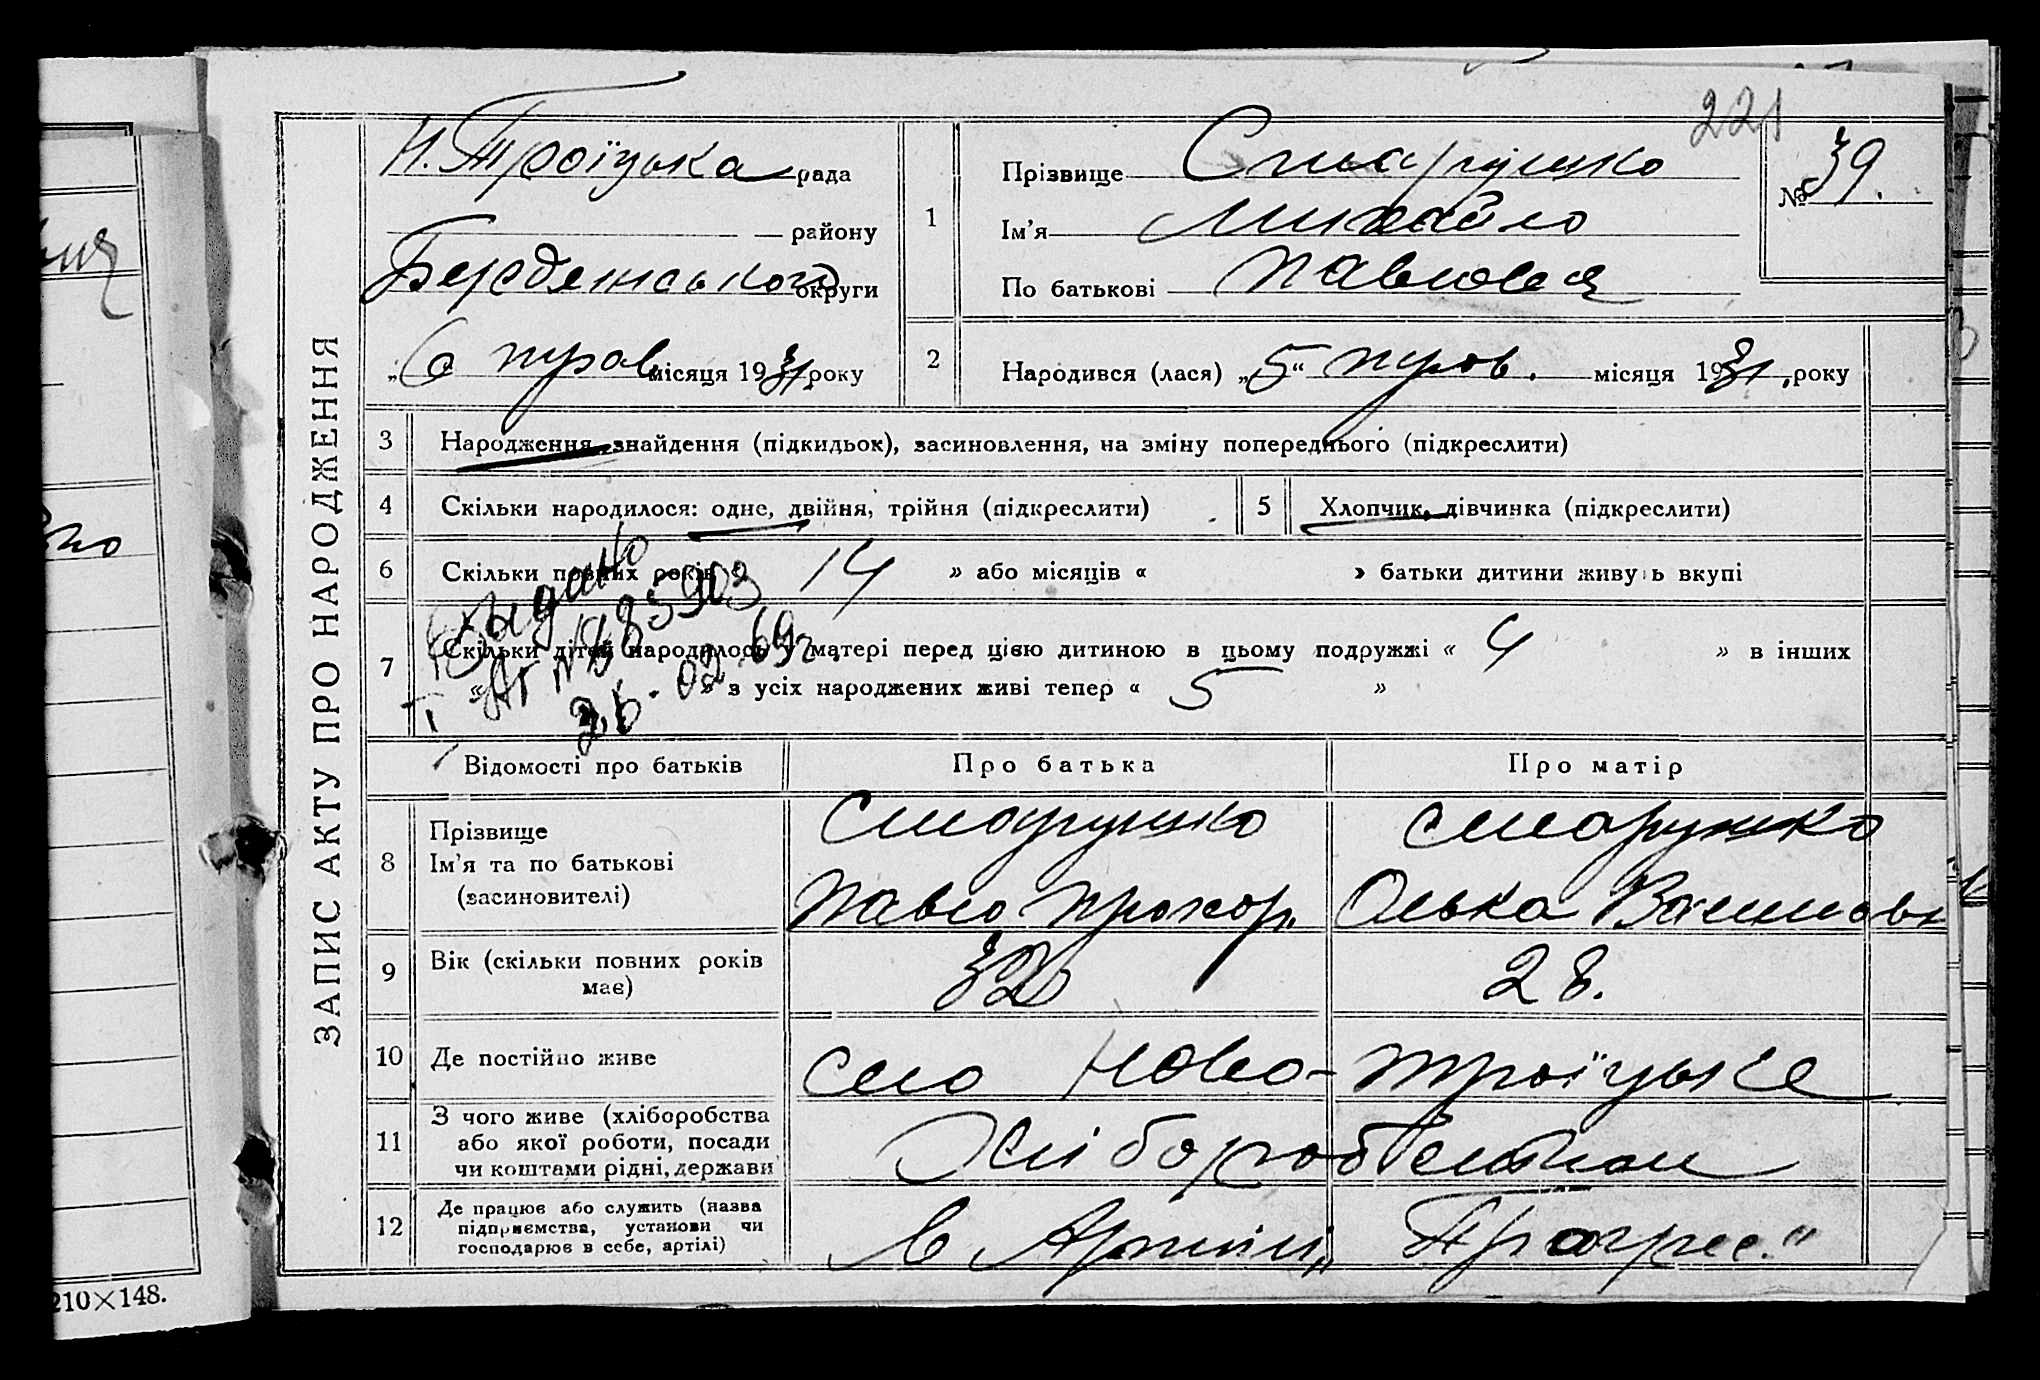 221
Н. Троїцька рада
району
Бердянського округи
„6 трав. місяця 1931 року
1
Прізвище Старушко
Ім'я Михайло
По батькові Павлов
№ 39.
2
Народився (лася) „5“ трав. місяця 1931, року
ЗАПИС АКТУ ПРО НАРОДЖЕННЯ
3 Народження, знайдення (підкидьок), засиновлення, на зміну попереднього (підкреслити)
4 Скільки народилося: одне, двійня, трійня (підкреслити)
5 Хлопчик, дівчинка (підкреслити)
6 Скільки повних років « 14 » або місяців « » батьки дитини живуть вкупі
7 Скільки дітей народилось у матері перед цією дитиною в цьому подружжі « 4 » в інших
« » з усіх народжених живі тепер « 5 »
Выдано
26.02.69г.
Відомості про батьків Про батька Про матір
8 Прізвище
Ім'я та по батькові
(засиновителі)
Старушко
Павло Прохор.
Старушко
Олька
9 Вік (скільки повних років
має)
32 28.
10 Де постійно живе село Ново-Троїцьке
11 З чого живе (хліборобства
або якої роботи, посади
чи коштами рідні, держави
12 Де працює або служить (назва
підприємства, установи чи
господарює в себе, артілі)
в Артілі „Прогрес."
210×148.